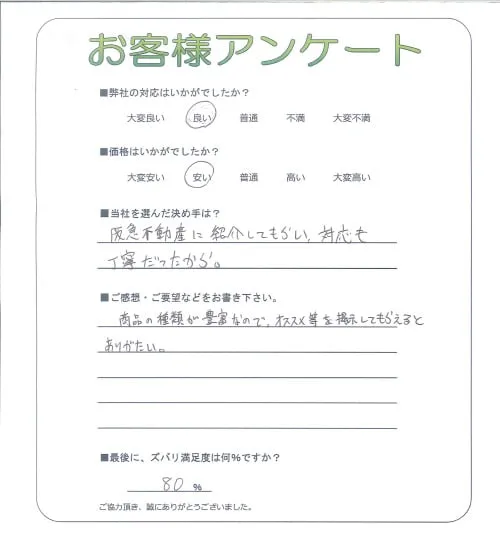 お客様アンケート
■弊社の対応はいかがでしたか?
大変良い 良い 普通 不満 大変不満
■価格はいかがでしたか?
大変安い 安い 普通 高い 大変高い
■当社を選んだ決め手は?
阪急不動産に紹介してもらい、対応も
丁寧だったから。
■ご感想・ご要望などをお書き下さい。
商品の種類が豊富なので、オススメ等を掲示してもらえると
ありがたい。
■最後に、ズバリ満足度は何%ですか?
80 %
ご協力頂き、誠にありがとうございました。